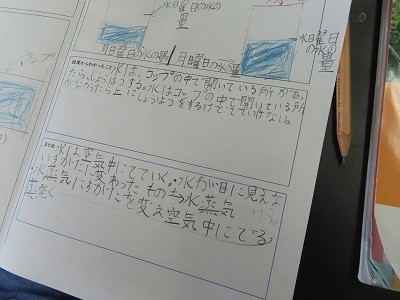 ランプ
水曜日の水の量
月曜日の水の量
月曜日の水の量
水曜日の水の量
結果からわかったこと
水は、コップの中で開いている所があったら、じょうはつする。水はコップの中で開いている所がなかったら上にじょうはつをするけどでていけない。
まとめ
水は空気中にでていく。水が目に見えないすがたに変わったもの→水蒸気
水蒸気にすがたを変え空気中にでる
蒸発